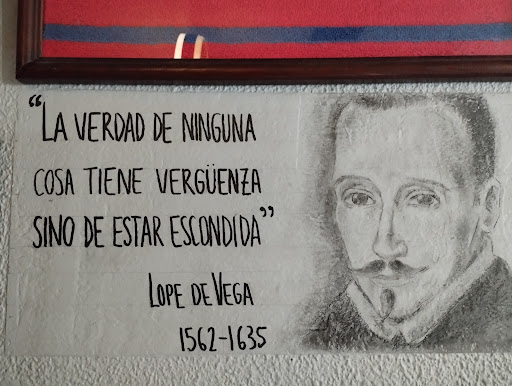 “LA VERDAD DE NINGUNA
COSA TIENE VERGÜENZA
SINO DE ESTAR ESCONDIDA”
LOPE DE VEGA
1562-1635